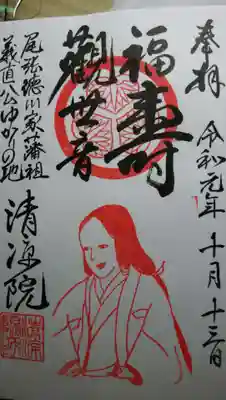 奉拝
令和元年十月十三日
福壽
観世音
尾張徳川家藩祖
義直公ゆかりの地
清凉院